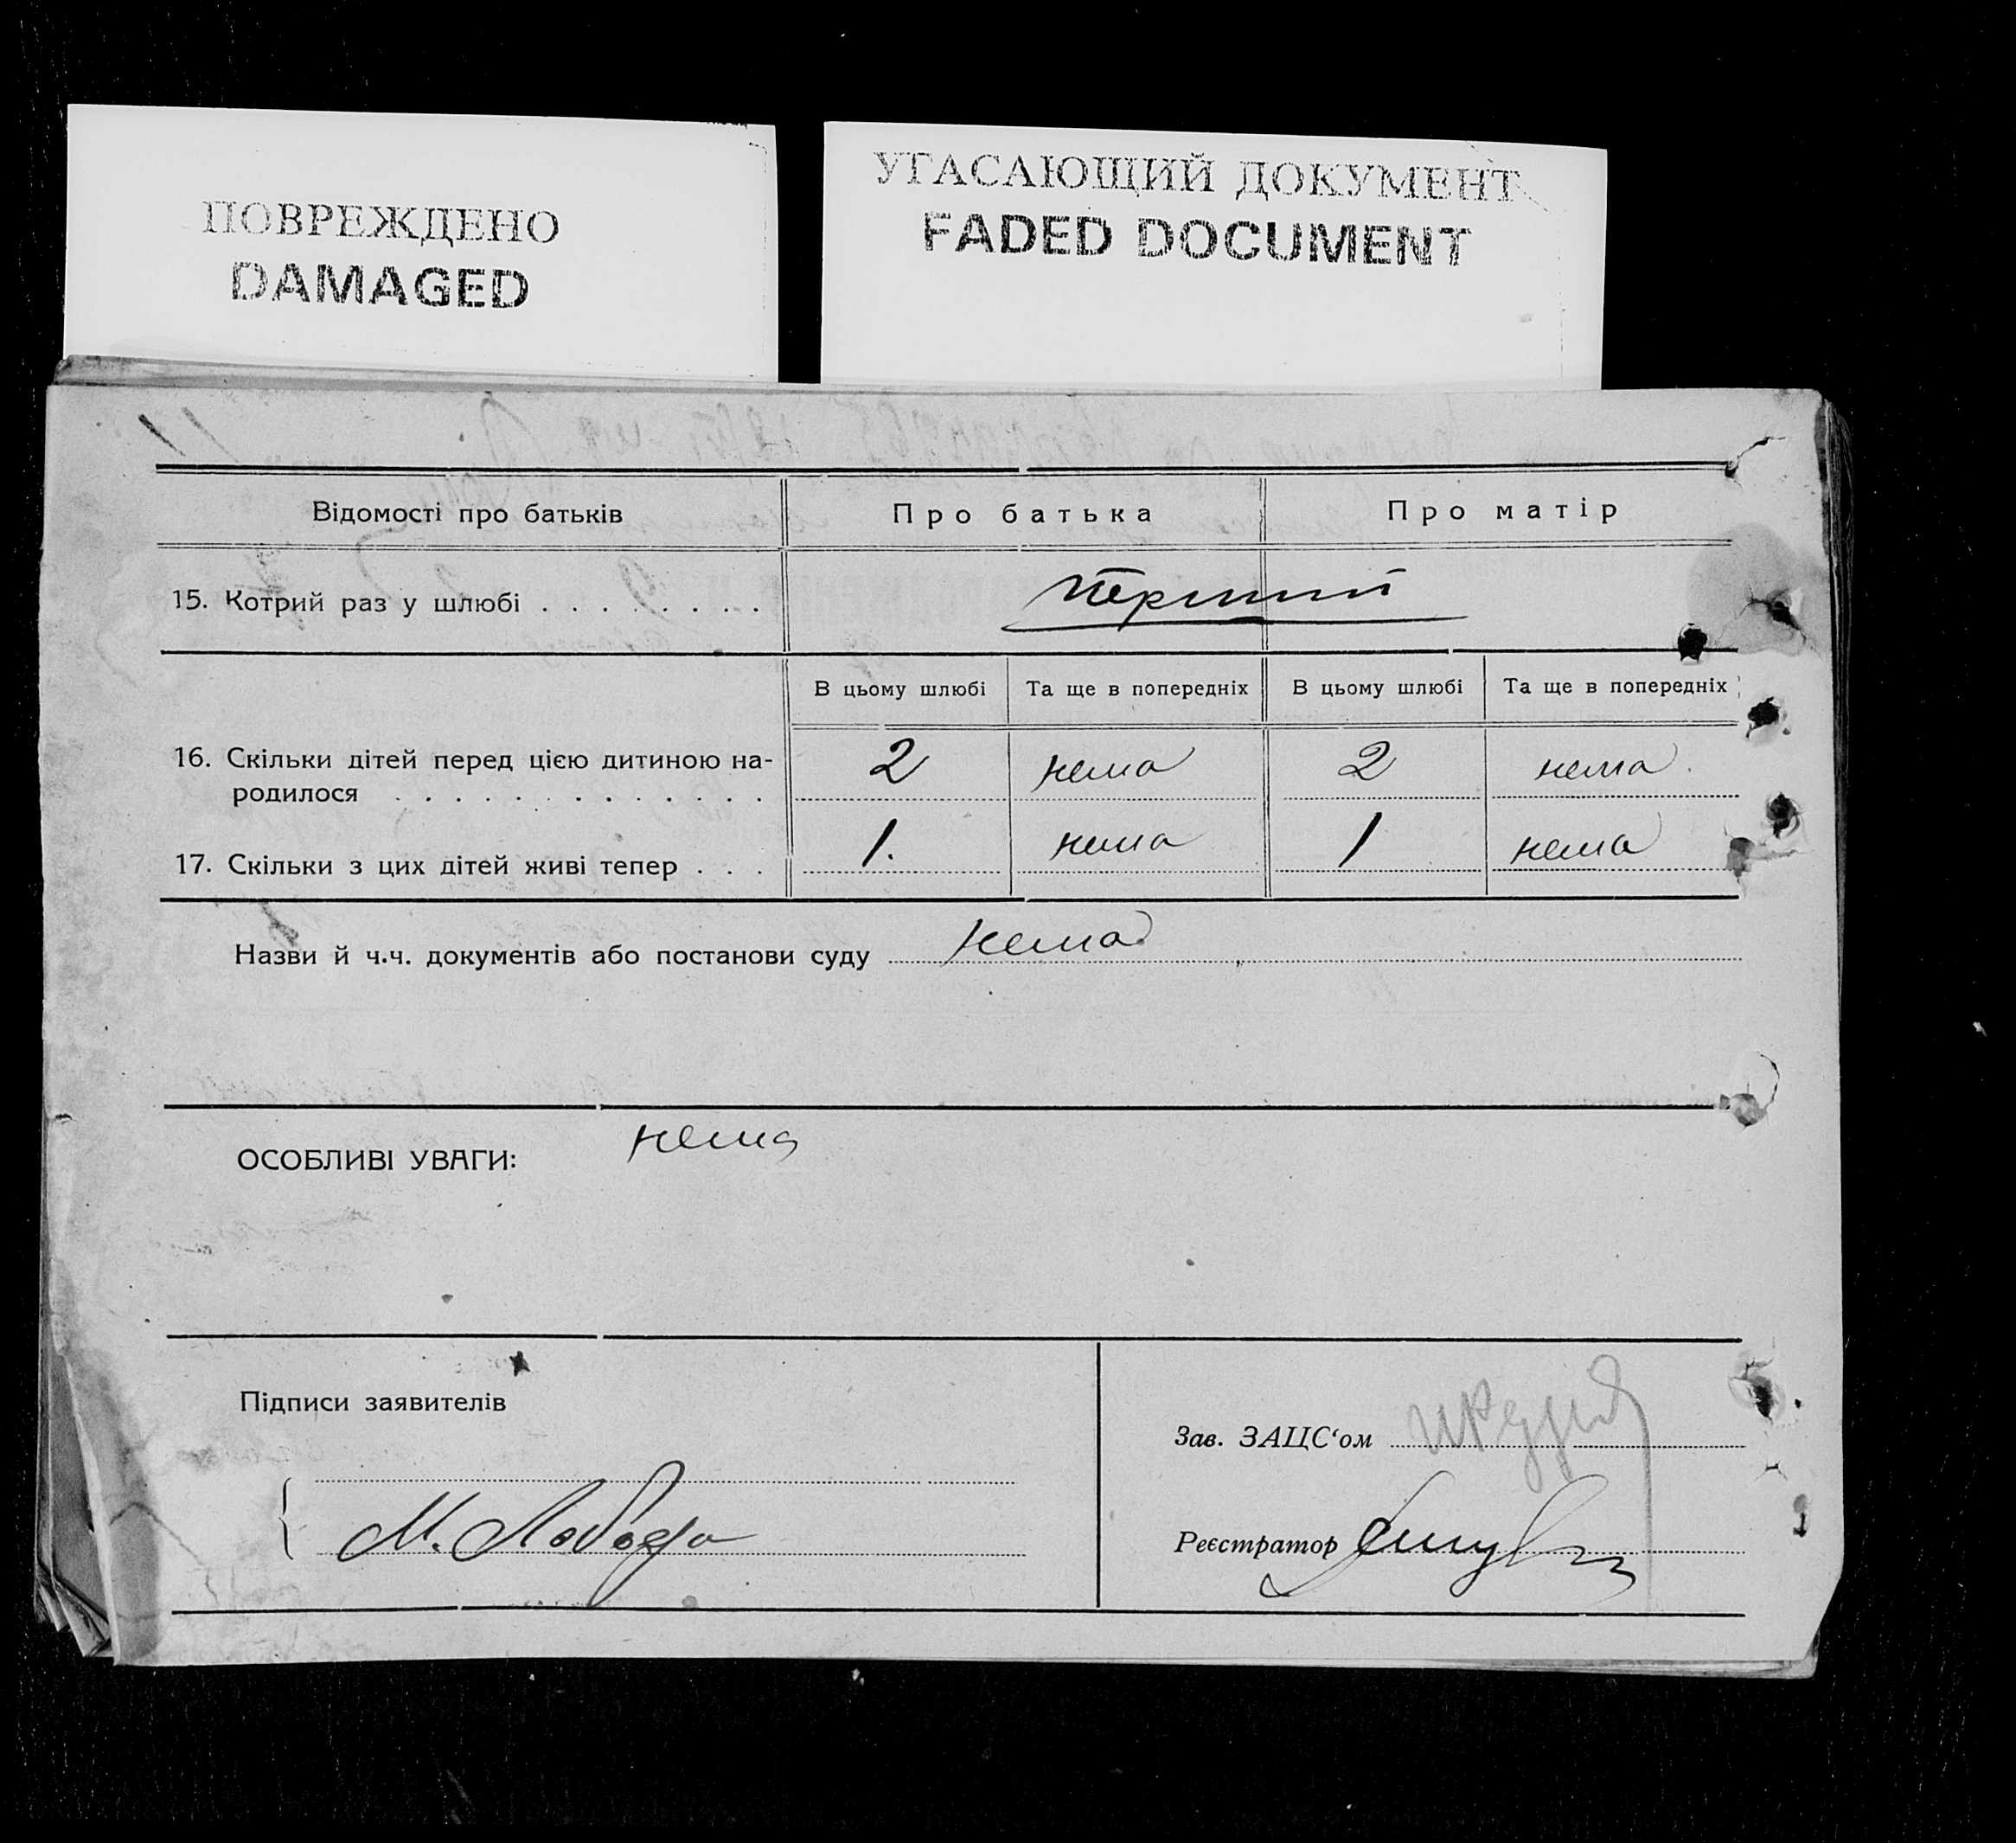 ПОВРЕЖДЕНО
DAMAGED
УГАСАЮЩИЙ ДОКУМЕНТ
FADED DOCUMENT
Відомості про батьків Про батька Про матір
15. Котрий раз у шлюбі . . . . . . . . перший
В цьому шлюбі Та ще в попередніх В цьому шлюбі Та ще в попередніх
16. Скільки дітей перед цією дитиною на-
родилося . . . . . . . . . . . . . 2 нема 2 нема
17. Скільки з цих дітей живі тепер . . . 1. нема 1 нема
Назви й ч.ч. документів або постанови суду нема
ОСОБЛИВІ УВАГИ: нема
Підписи заявителів
М. Лобода
Зав. ЗАЦС‘ом
Реєстратор